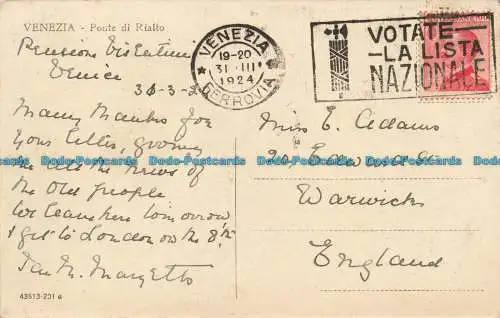 VENEZIA - Ponte di Rialto
Pensione
Venice
30-3-24
Many thanks for
your letter, giving
me all the news of
the old people
We leave here tomorrow
& get to London on the 8th
VENEZIA
19-20
31 · III
1924
FERROVIA
VOTATE
LA LISTA
NAZIONALE
Miss E. Adams
20,
Warwick
England
43613-201 a
Dodo-Postcards Dodo-Postcards Dodo-Postcards Dodo-Postcards